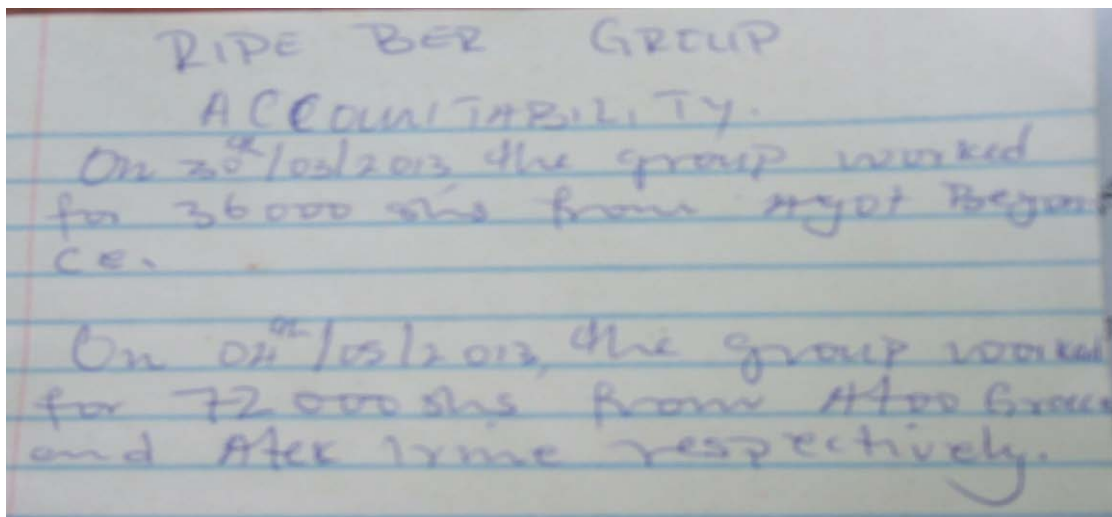 RIPE BER GROUP
ACCOUNTABILITY.
On 30th/03/2013 the group worked
for 36000 shs from Ayot Beyon
ce.
On 04th/05/2013, the group worked
for 72000 shs from Atoo Grace
and Atek Irine respectively.